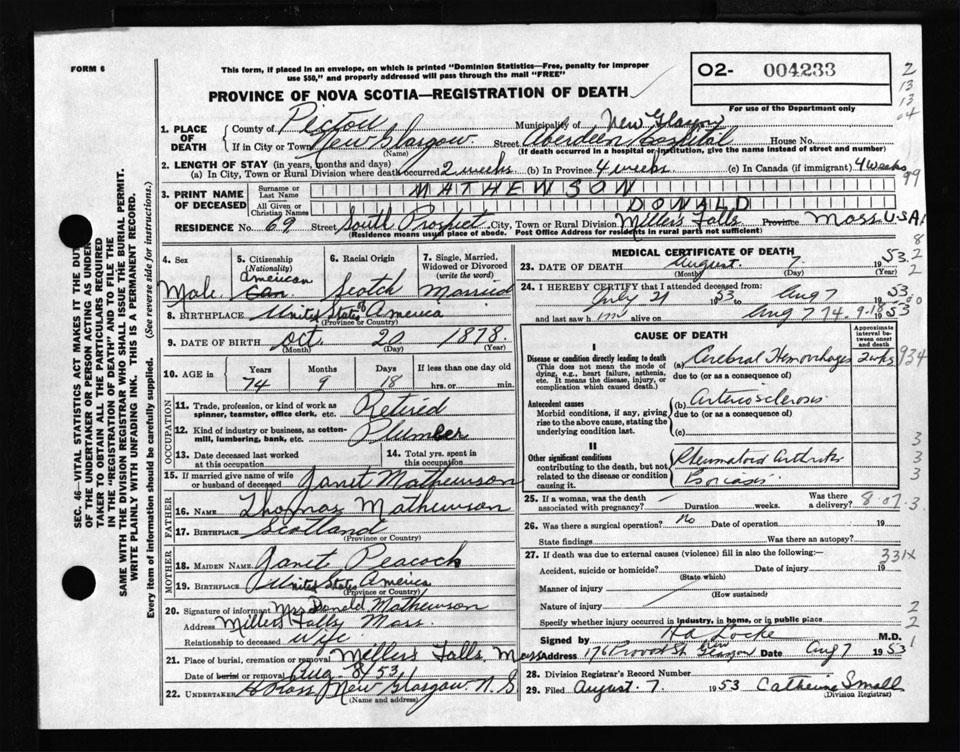 FORM 6
This form, if placed in an envelope, on which is printed "Dominion Statistics—Free, penalty for improper
use $50," and properly addressed will pass through the mail "FREE"
O2- 004233
PROVINCE OF NOVA SCOTIA—REGISTRATION OF DEATH
For use of the Department only
1. PLACE OF DEATH
County of Pictou Municipality of New Glasgow
If in City or Town New Glasgow. Street Aberdeen Hospital House No.
(Name) (If death occurred in a hospital or institution, give the name instead of street and number)
2. LENGTH OF STAY (in years, months and days)
(a) In City, Town or Rural Division where death occurred 2 weeks (b) In Province 4 weeks. (c) In Canada (if immigrant) 4 weeks
3. PRINT NAME OF DECEASED
Surname or Last Name MATHEWSON
All Given or Christian Names DONALD
RESIDENCE No. 69 Street South Prospect City, Town or Rural Division Millers Falls Province Mass USA
(Residence means usual place of abode. Post Office Address for residents in rural parts not sufficient)
4. Sex Male
5. Citizenship (Nationality) American Can.
6. Racial Origin Scotch
7. Single, Married, Widowed or Divorced (write the word) Married
8. BIRTHPLACE United States of America
(Province or Country)
9. DATE OF BIRTH Oct 20 1878
(Month) (Day) (Year)
10. AGE in Years Months Days If less than one day old
74 9 18 hrs. or min.
OCCUPATION
11. Trade, profession, or kind of work as spinner, teamster, office clerk, etc. Retired
12. Kind of industry or business, as cotton-mill, lumbering, bank, etc. Plumber
13. Date deceased last worked at this occupation
14. Total yrs. spent in this occupation
15. If married give name of wife or husband of deceased Janet Mathewson
FATHER
16. Name Thomas Mathewson
17. Birthplace Scotland
(Province or Country)
MOTHER
18. MAIDEN NAME Janet Peacock
19. BIRTHPLACE United States America
(Province or Country)
20. Signature of informant Mrs Donald Mathewson
Address Millers Falls Mass.
Relationship to deceased Wife
21. Place of burial, cremation or removal Millers Falls, Mass
Date of burial or removal Aug. 8/53
22. UNDERTAKER New Glasgow. N.S.
(Name and address)
MEDICAL CERTIFICATE OF DEATH
23. DATE OF DEATH August. 7 1953.
(Month) (Day) (Year)
24. I HEREBY CERTIFY that I attended deceased from:
July 21 1953 to Aug 7 1953.
and last saw him alive on Aug 7 1953
CAUSE OF DEATH
Approximate interval between onset and death
I
Disease or condition directly leading to death
(This does not mean the mode of dying, e.g., heart failure, asthenia, etc. It means the disease, injury, or complication which caused death.)
(a) Cerebral Hemorrhage 2 wks
due to (or as a consequence of)
Antecedent causes
Morbid conditions, if any, giving rise to the above cause, stating the underlying condition last.
(b) Arteriosclerosis
due to (or as a consequence of)
(c)
II
Other significant conditions
contributing to the death, but not related to the disease or condition causing it.
Rheumatoid Arthritis
Psoriasis
25. If a woman, was the death associated with pregnancy? Duration weeks. Was there a delivery?
26. Was there a surgical operation? No Date of operation 19
State findings Was there an autopsy?
27. If death was due to external causes (violence) fill in also the following:—
Accident, suicide or homicide? Date of injury 19
(State which)
Manner of injury
(How sustained)
Nature of injury
Specify whether injury occurred in industry, in home, or in public place
Signed by H.A. Locke M.D.
Address 176 Provost St. New Glasgow Date Aug 7 1953
28. Division Registrar's Record Number
29. Filed August. 7. 1953 Catherine Small
(Division Registrar)
934
8-07.
331X
SEC. 46—VITAL STATISTICS ACT MAKES IT THE DUTY
OF THE UNDERTAKER OR PERSON ACTING AS UNDER-
TAKER TO OBTAIN ALL THE PARTICULARS REQUIRED
IN THE "REGISTRATION OF DEATH" AND TO FILE THE
SAME WITH THE DIVISION REGISTRAR WHO SHALL ISSUE THE BURIAL PERMIT.
WRITE PLAINLY WITH UNFADING INK. THIS IS A PERMANENT RECORD.
Every item of information should be carefully supplied. (See reverse side for instructions.)